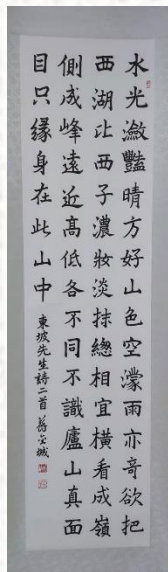 水光瀲豔晴方好山色空濛雨亦奇欲把
西湖比西子濃妝淡抹總相宜橫看成嶺
側成峰遠近高低各不同不識廬山真面
目只緣身在此山中東坡先生詩二首